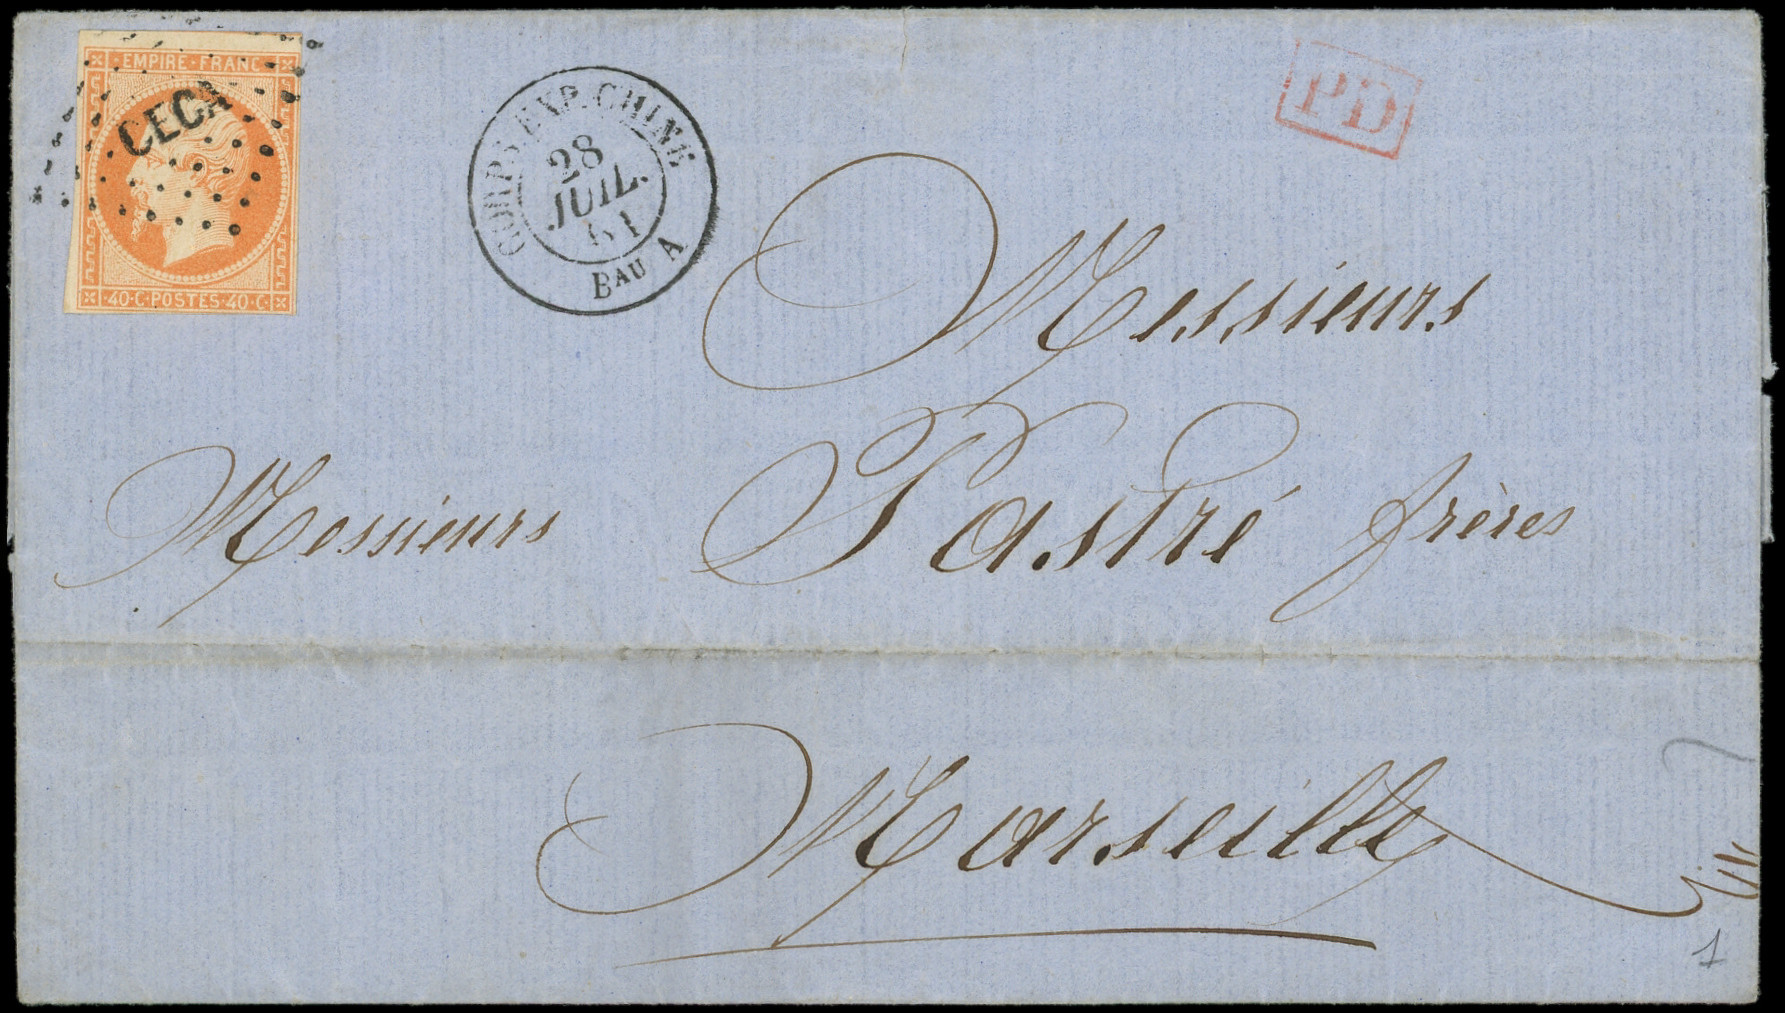 EMPIRE · FRANC ·
CECA
40 · C · POSTES · 40 · C ·
CORPS EXP. CHINE
28
JUIL.
61
BAU A
PD
Messieurs
Pastré frères
Messieurs
Marseille
1